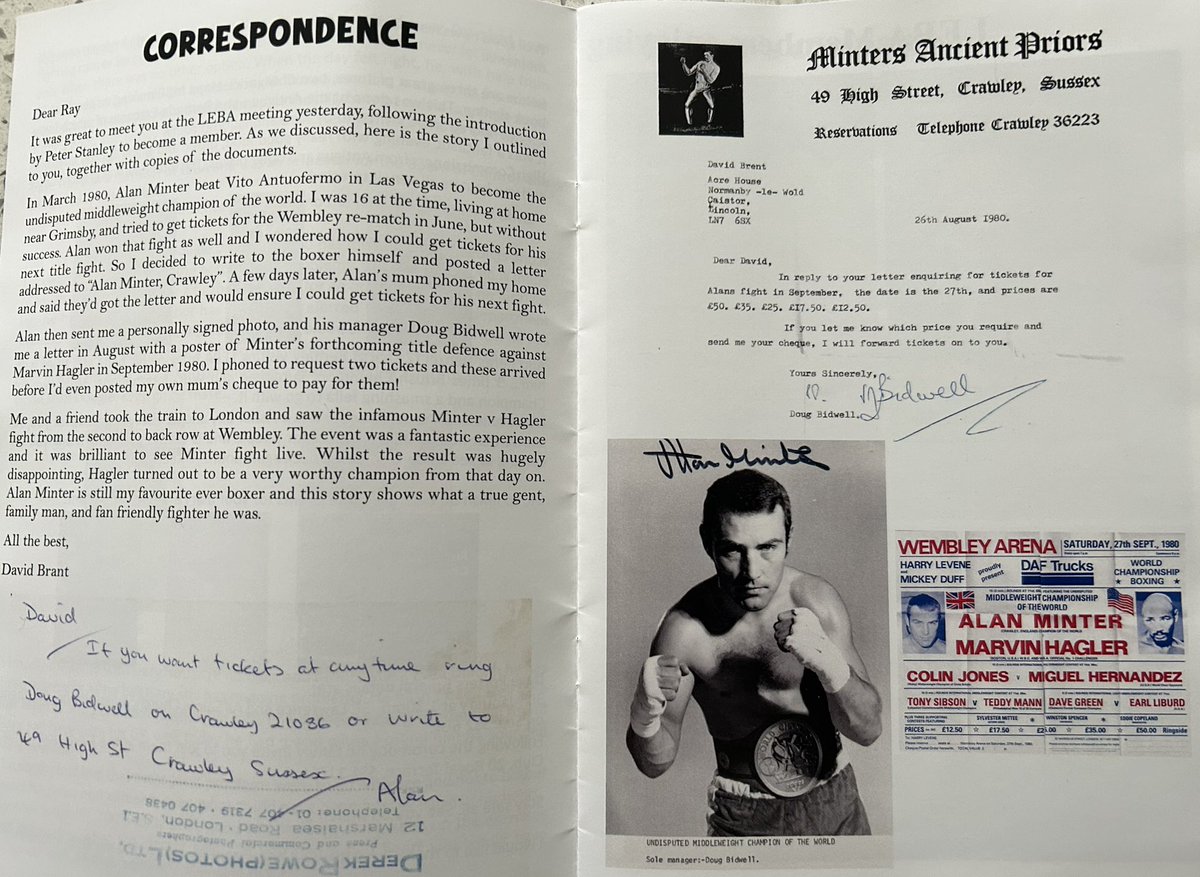 CORRESPONDENCE
Dear Ray
It was great to meet you at the LEBA meeting yesterday, following the introduction
by Peter Stanley to become a member. As we discussed, here is the story I outlined
to you, together with copies of the documents.
In March 1980, Alan Minter beat Vito Antuofermo in Las Vegas to become the
undisputed middleweight champion of the world. I was 16 at the time, living at home
near Grimsby, and tried to get tickets for the Wembley re-match in June, but without
success. Alan won that fight as well and I wondered how I could get tickets for his
next title fight. So I decided to write to the boxer himself and posted a letter
addressed to “Alan Minter, Crawley”. A few days later, Alan’s mum phoned my home
and said they’d got the letter and would ensure I could get tickets for his next fight.
Alan then sent me a personally signed photo, and his manager Doug Bidwell wrote
me a letter in August with a poster of Minter’s forthcoming title defence against
Marvin Hagler in September 1980. I phoned to request two tickets and these arrived
before I’d even posted my own mum’s cheque to pay for them!
Me and a friend took the train to London and saw the infamous Minter v Hagler
fight from the second to back row at Wembley. The event was a fantastic experience
and it was brilliant to see Minter fight live. Whilst the result was hugely
disappointing, Hagler turned out to be a very worthy champion from that day on.
Alan Minter is still my favourite ever boxer and this story shows what a true gent,
family man, and fan friendly fighter he was.
All the best,
David Brant
David
If you want tickets at anytime ring
Doug Bidwell on Crawley 21036 or write to
49 High St Crawley Sussex.
Alan.
DEREK ROWE (PHOTOS) LTD,
Press and Commercial Photographers
12 Marshalsea Road · London, S.E.1
Telephone: 01-407 7319 · 407 0438
Minters Ancient Priors
49 High Street, Crawley, Sussex
Reservations Telephone Crawley 36223
David Brent
Acre House
Normanby -le- Wold
Caistor,
Lincoln,
LN7 6SX
26th August 1980.
Dear David,
In reply to your letter enquiring for tickets for
Alans fight in September, the date is the 27th, and prices are
£50. £35. £25. £I7.50. £I2.50.
If you let me know which price you require and
send me your cheque, I will forward tickets on to you.
Yours Sincerely,
Bidwell
Doug Bidwell.
Alan Minter
UNDISPUTED MIDDLEWEIGHT CHAMPION OF THE WORLD
Sole manager:-Doug Bidwell.
WEMBLEY ARENA SATURDAY, 27th SEPT., 1980
HARRY LEVENE and MICKEY DUFF proudly present DAF Trucks WORLD CHAMPIONSHIP BOXING
MIDDLEWEIGHT CHAMPIONSHIP
OF THE WORLD
ALAN MINTER
MARVIN HAGLER
COLIN JONES v MIGUEL HERNANDEZ
TONY SIBSON v TEDDY MANN DAVE GREEN v EARL LIBURD
PLUS THREE SUPPORTING CONTESTS FEATURING SYLVESTER MITTEE WINSTON SPENCER EDDIE COPELAND
PRICES £12.50 £17.50 £35.00 £50.00 Ringside